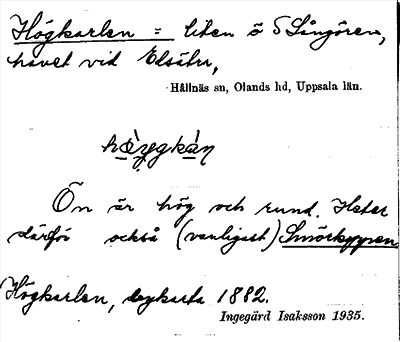 Högkarlen = liten ö S Sångören,
havet vid Elsätra,
Hållnäs sn, Olands hd, Uppsala län.
Ön är hög och rund. Heter
därför också (vanligast) Smörkyppen
Högkarlen, sjökarta 1882.
Ingegärd Isaksson 1935.